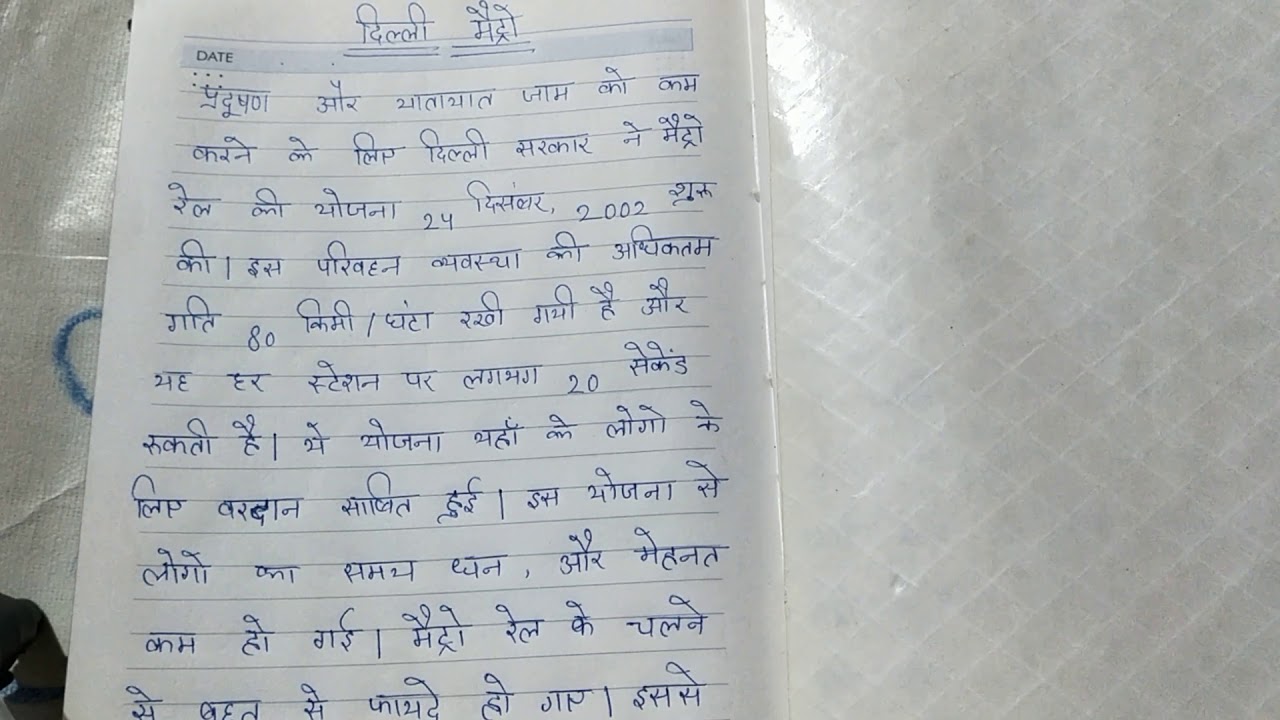 दिल्ली मैट्रो
DATE
प्रदूषण और यातायात जाम को कम
करने के लिए दिल्ली सरकार ने मैट्रो
रेल की योजना 24 दिसंबर, 2002 शुरू
की। इस परिवहन व्यवस्था की अधिकतम
गति 80 किमी / घंटा रखी गयी है और
यह हर स्टेशन पर लगभग 20 सेकेंड
रुकती है। ये योजना यहाँ के लोगो के
लिए वरदान साबित हुई। इस योजना से
लोगों का समय धन, और मेहनत
कम हो गई। मैट्रो रेल के चलने
से बहुत से फायदे हो गए। इससे